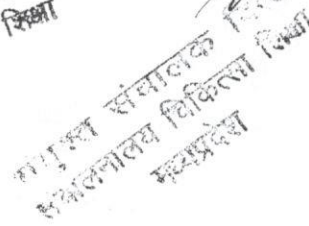 शिक्षा
संचालक
संचालनालय चिकित्सा शिक्षा
मध्यप्रदेश